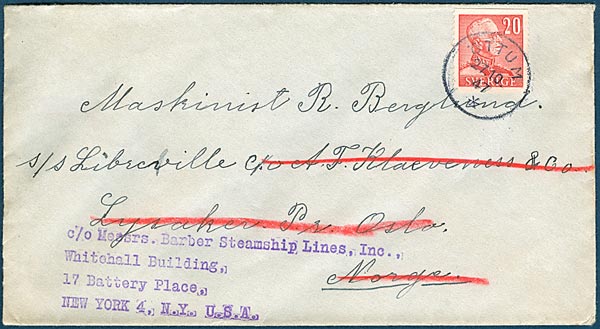 20
SVERIGE
Maskinist R. Berglund.
s/s Libreville c/o A. F. Klaveness & Co
Lysaker Pr. Oslo.
Norge.
c/o Messrs. Barber Steamship Lines, Inc.,
Whitehall Building,
17 Battery Place,
NEW YORK 4, N.Y. U.S.A.